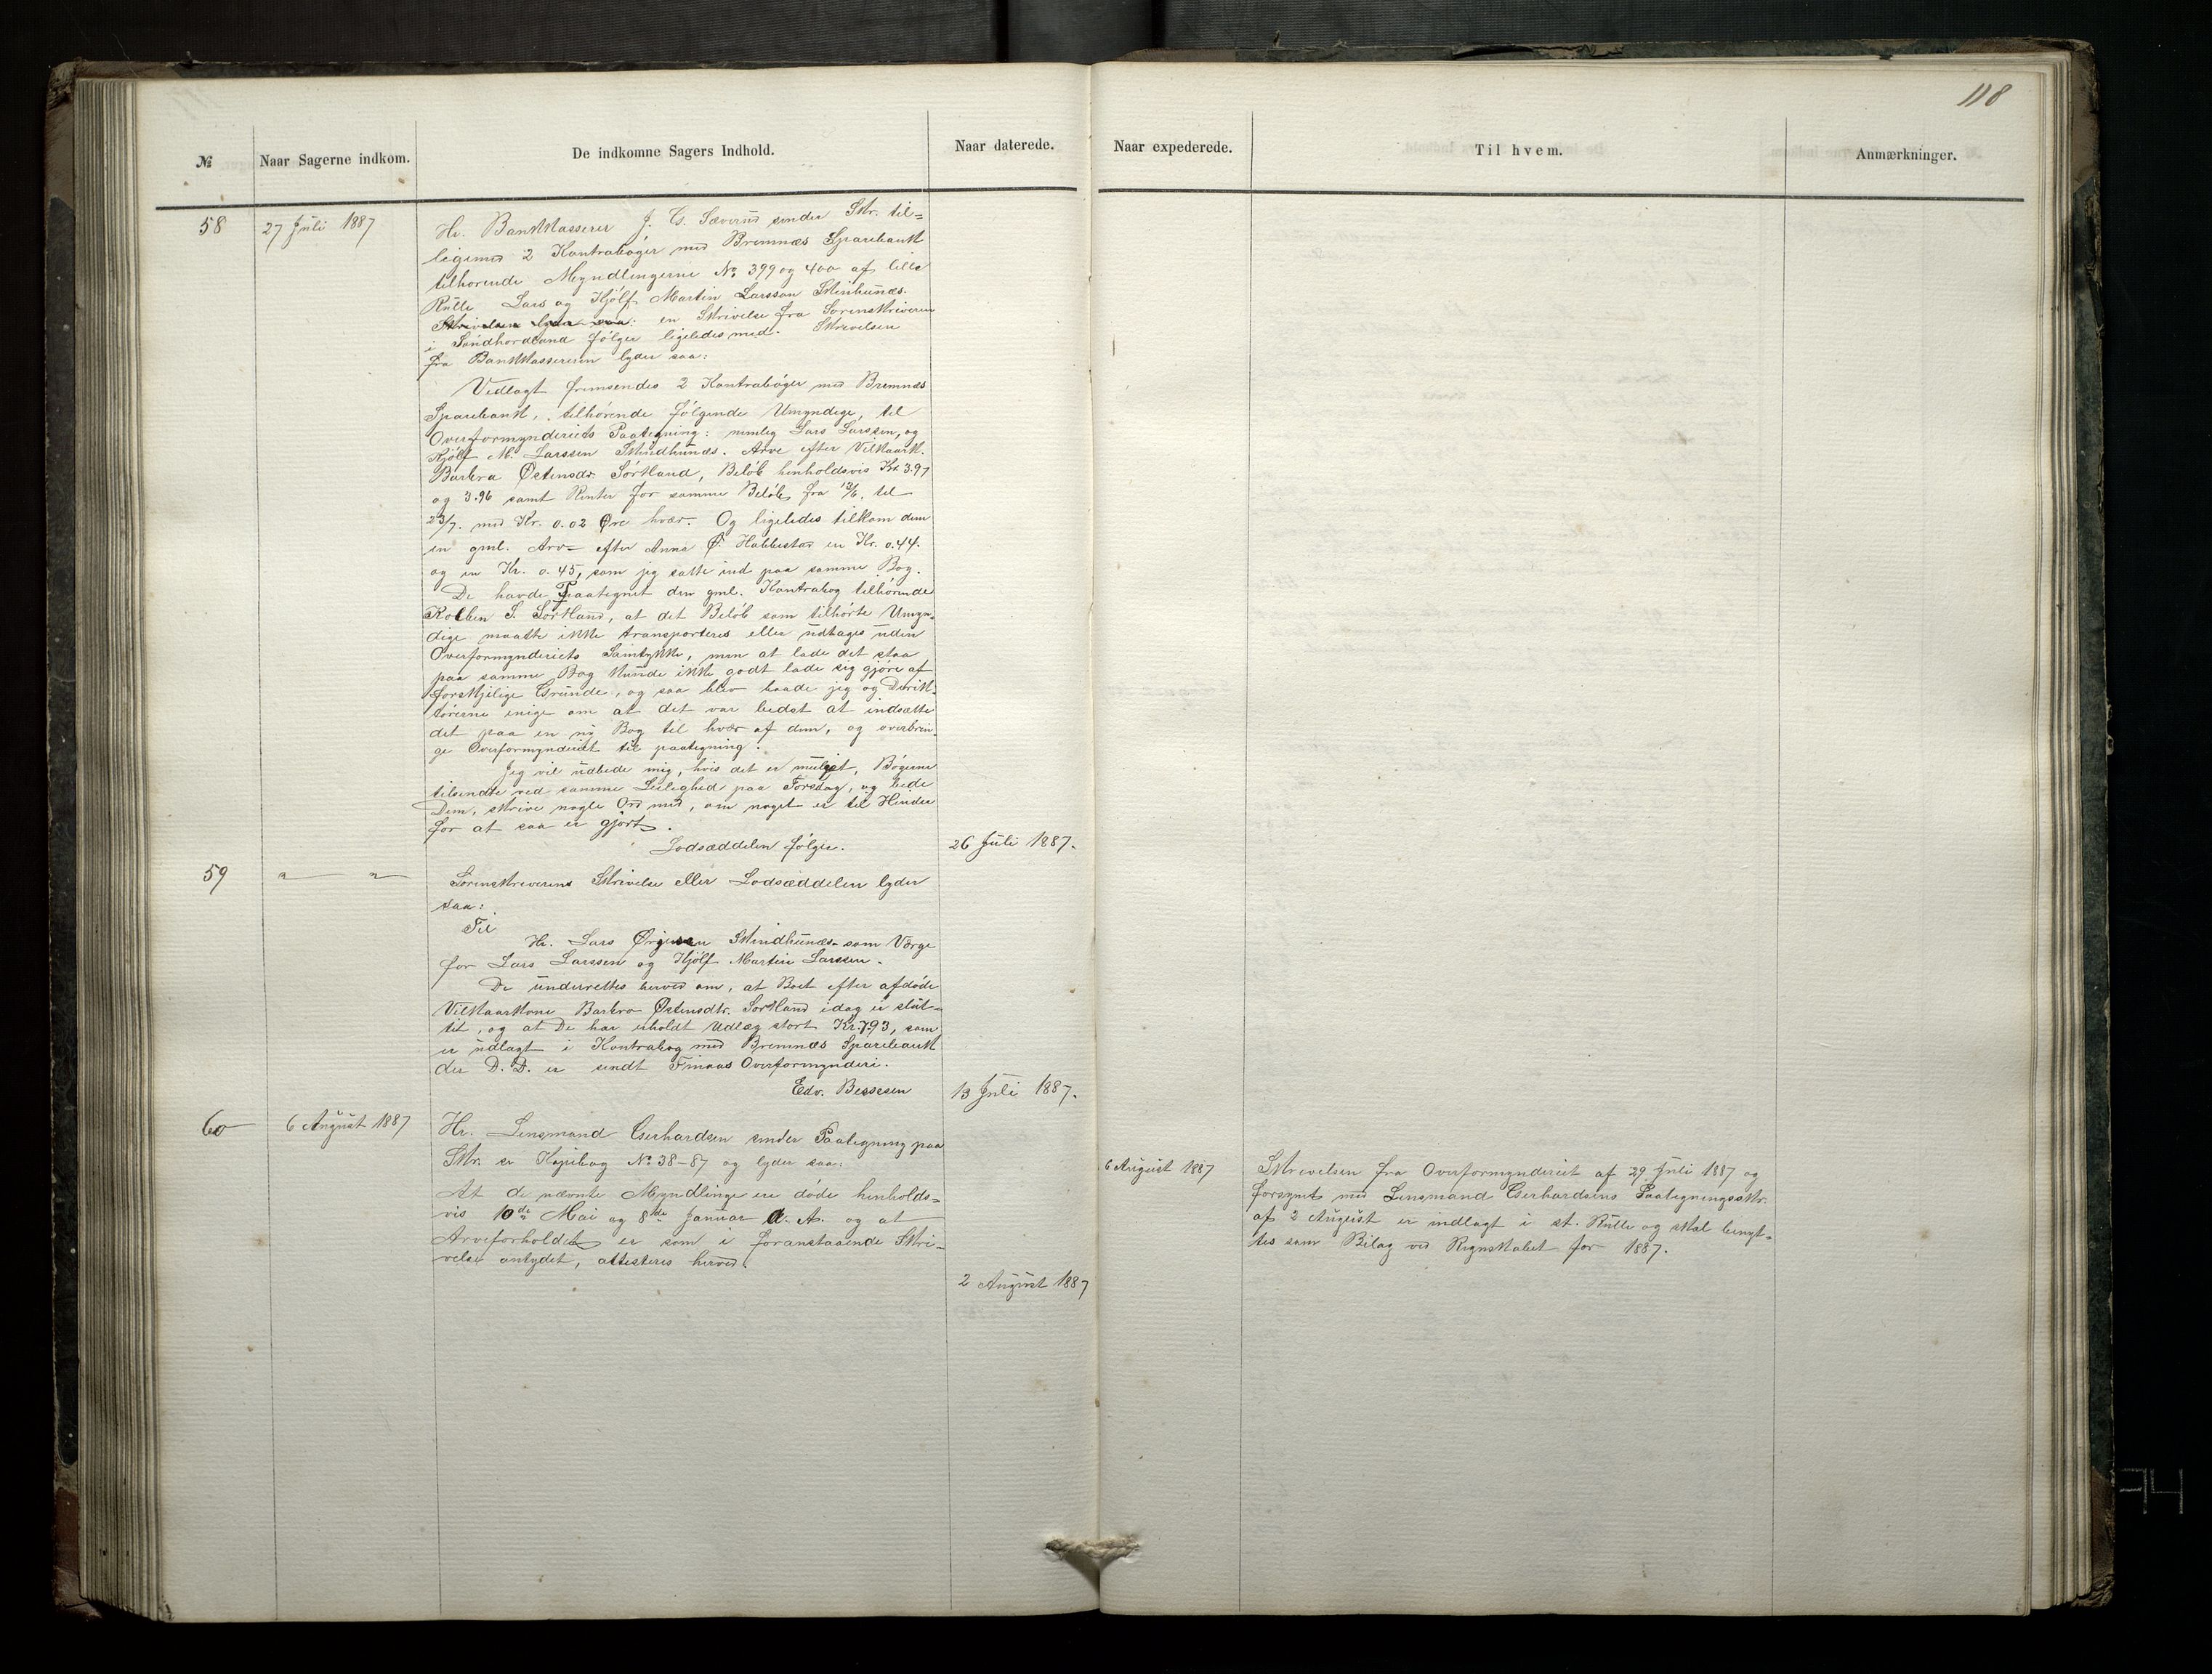 118
№ Naar Sagerne indkom. De indkomne Sagers Indhold. Naar daterede. Naar expederede. Til hvem. Anmærkninger.
58 27 Juli 1887
Hr. Bankkasserer J. G. Sæverud sender Skr. til=
ligemed 2 Kontrabøger med Bremnæs Sparebank
tilhørende Myndlingerne No. 399 og 400 af lille
Rulle Lars og Kjølf Martin Larsson
Skrivelsen lyder saa: en Skrivelse fra Sorenskriveren
i Søndhordland følger ligeledes med. Skrivelsen
fra Bankkassereren lyder saa:
Vedlagt fremsendes 2 Kontrabøger med Bremnæs
Sparebank, tilhørende følgende Umyndige, til
Overformynderiets Paategning: nemlig Lars Larssen, og
Kjølf M. Larssen Skindhunæs. Arve efter Vilkaark.
Barbra Østensdr. Sørtland, Beløb hinholdsvis Kr. 3.97
og 3.96 samt Renter for samme Beløb fra 13/6. til
23/7. med Kr. 0.02 Øre hver. Og ligeledes tilkom dem
en gml. Arv= efter Anna Ø. Habbestad en Kr. 0.44.
og en Kr. 0.45, som jeg satte ind paa samme Bog.
De havde Paategnet den gml. Kontrabog tilhørende
S. Sørtland, at det Beløb som tilhørte Umyn=
dige maatte ikke transporteres eller udtages uden
Overformynderiets Samtykke, men at lade det staa
paa samme Bog kunde ikke godt lade sig gjøre af
forskjelige Grunde, og saa blev baade jeg og Dirik=
tørerne enige om at det var bedst at indsætte
det paa en ny Bog til hver af dem, og overbrin=
ge Overformynderiet til paategning.
Jeg vil udbede mig, hvis det er muligt, Bøgerne
tilsendte ved samme Leilighed paa Torsdag, og bede
Dem, skrive nogle Ord med, om noget er til Hinder
for at saa er gjort.
Lodsæddelen følger. 26 Juli 1887.
59 " "
Sorenskriverens Skrivelse eller Lodsæddelen lyder
saa:
Til
Hr. Lars Skindhunæs som Værge
for Lars Larssen og Kjølf Martin Larssen.
De underrettes herved om, at Boet efter afdøde
Vilkaarkone Barbro Østensdtr. Sørtland idag er slut=
tet, og at De har erholdt Udlæg stort Kr. 7.93, som
er udlagt i Kontrabog med Bremnæs Sparebank
der D. D. er sendt Finaas Overformynderi.
Edv. Bessesen 13 Juli 1887.
60 6 August 1887
Hr. Lensmand Gerhardsen sender Paategning paa
Skr. se Kopibog No. 38-87 og lyder saa:
At de nævnte Myndlinge ere døde henholds=
vis 10de Mai og 8de Januar d. A. og at
Arveforholdet er som i foranstaaende Skri=
velse antydet, attesteres herved.
2 August 1887
6 August 1887
Skrevelsen fra Overformynderiet af 29 Juli 1887 og
forsynt med Lensmand Gerhardsens Paategningsskr.
af 2 August er indlagt i st. Rulle og skal benyt=
tes som Bilag ved Regnskabet for 1887.